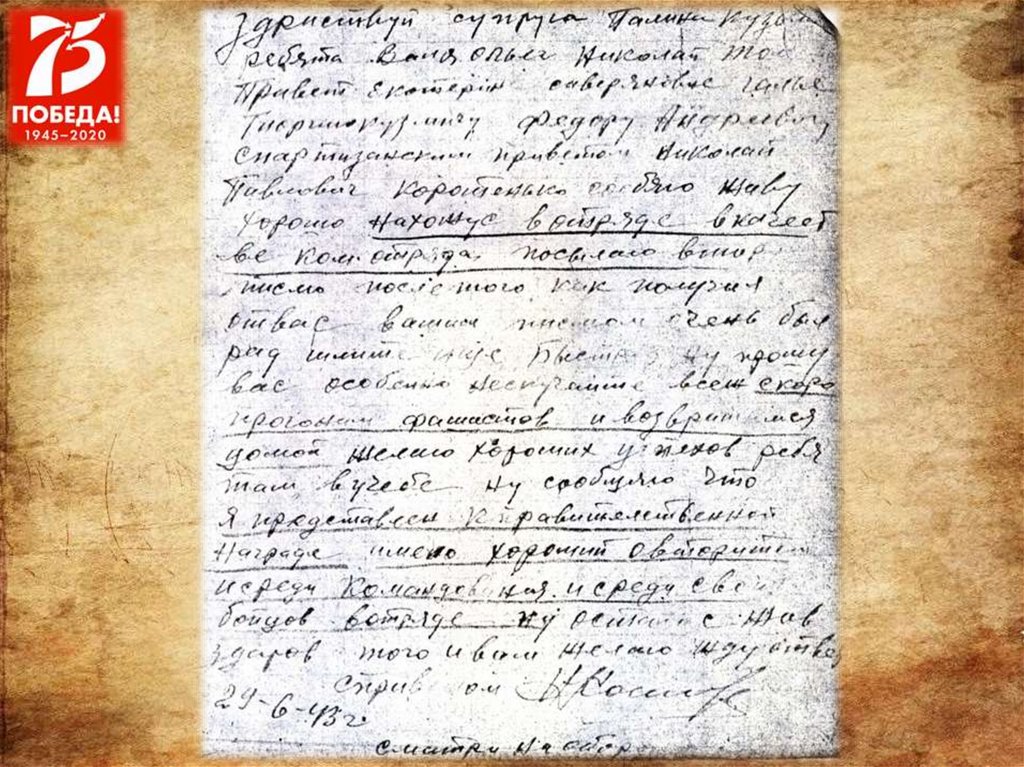 75
ПОБЕДА!
1945–2020
Здраствуй супруга Палина Кузом
ребята Ваня Ольга Николай
Привет екотерін саверяновне галье
кузмичу Федору Андреевичу
спартизанским приветом Николай
Павлович коротенько сообяю живу
хорошо нахожус вотряде вкачест
ве ком.отряда. посылаю втор
писмо послетого как получил
отвас вашим писмом очень был
рад пишите ну прошу
вас особенно нескучайте всеж скоро
прогоним фашистов ивозвритимся
домой желаю хороших успехов ребя
там вучебе ну сообщяю что
я представлен к правителственной
награде имею хороший овторитет
исреди командования исреди своих
бойцов вотряде ну остаюс жив
здаров того ивам желаю жду ответ
сприветом
29-6-43 г.
смотри на обор